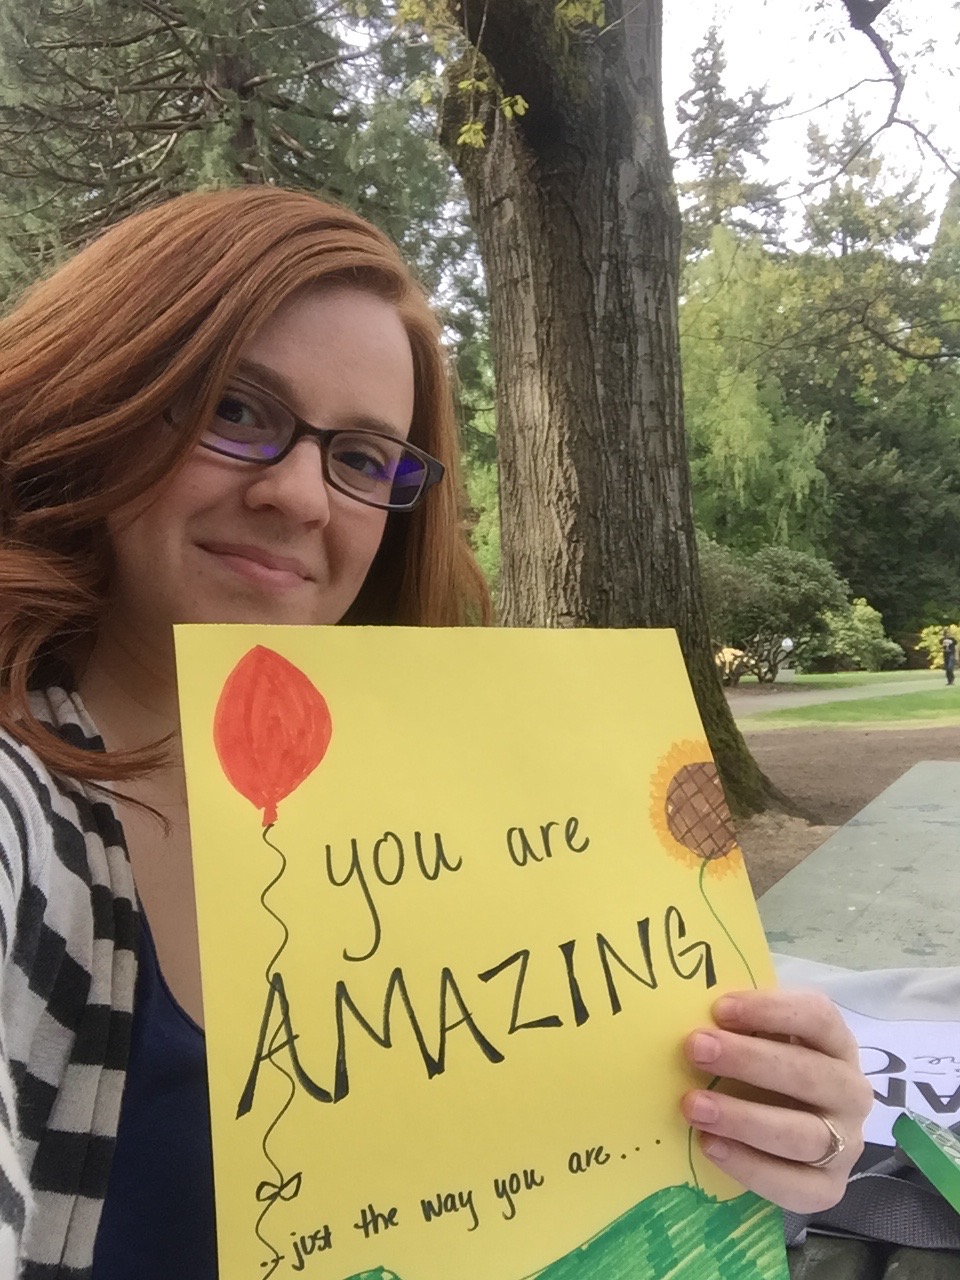 you are
AMAZING
...just the way you are...